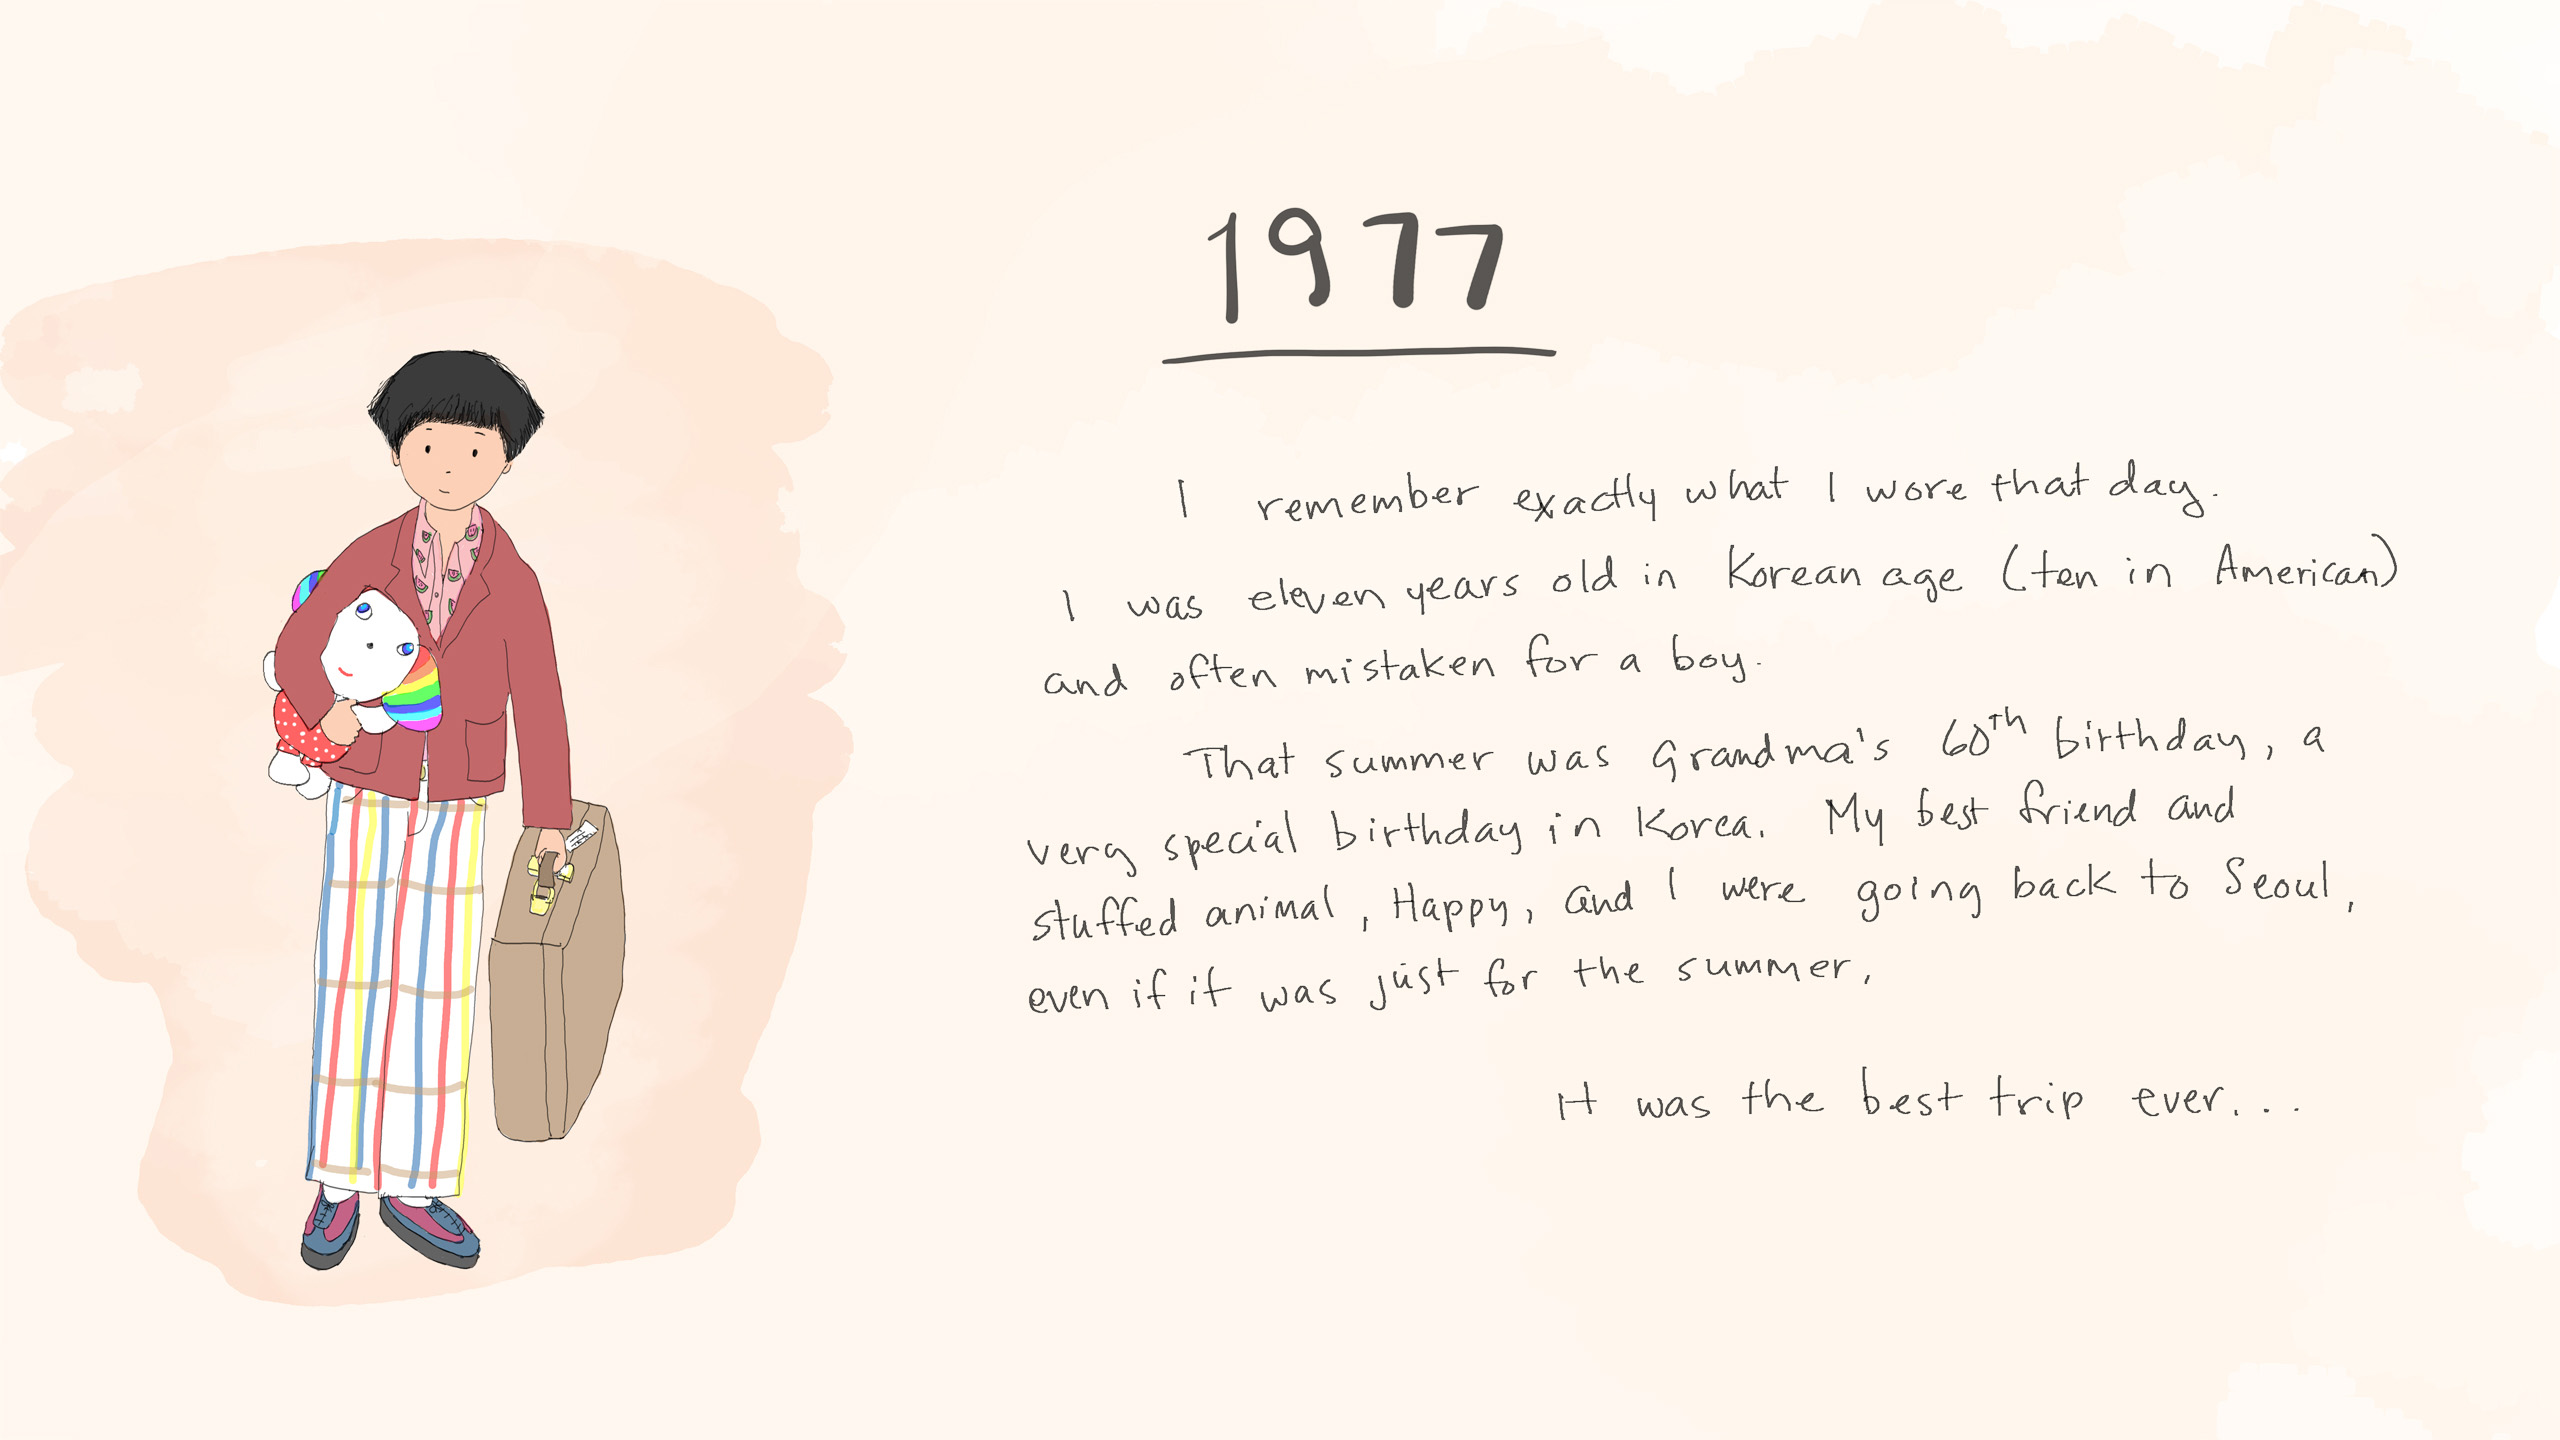 1977
I remember exactly what I wore that day.
I was eleven years old in Korean age (ten in American)
and often mistaken for a boy.
That summer was Grandma's 60th birthday, a
very special birthday in Korea. My best friend and
stuffed animal, Happy, and I were going back to Seoul,
even if it was just for the summer.
It was the best trip ever...